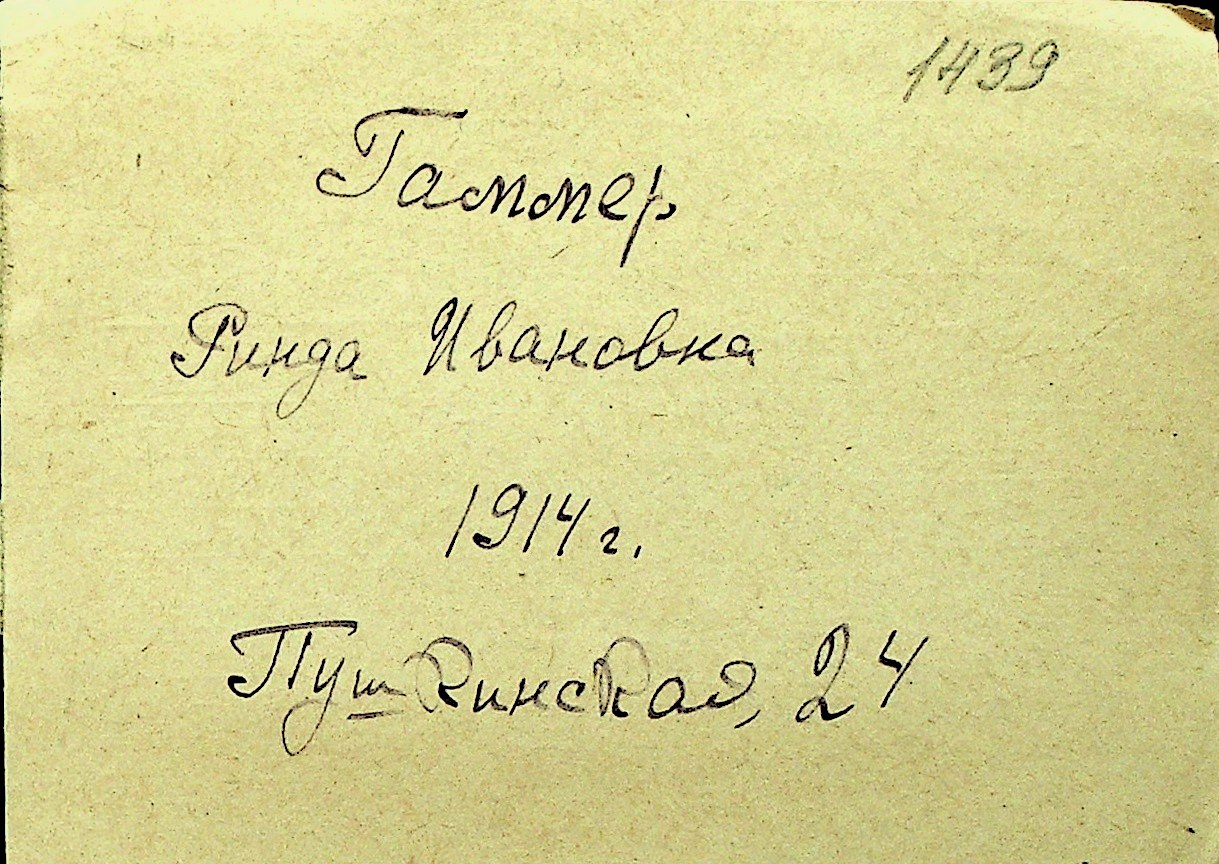 1439
Гаммер
Ринда Ивановна
1914 г.
Пушкинская, 24